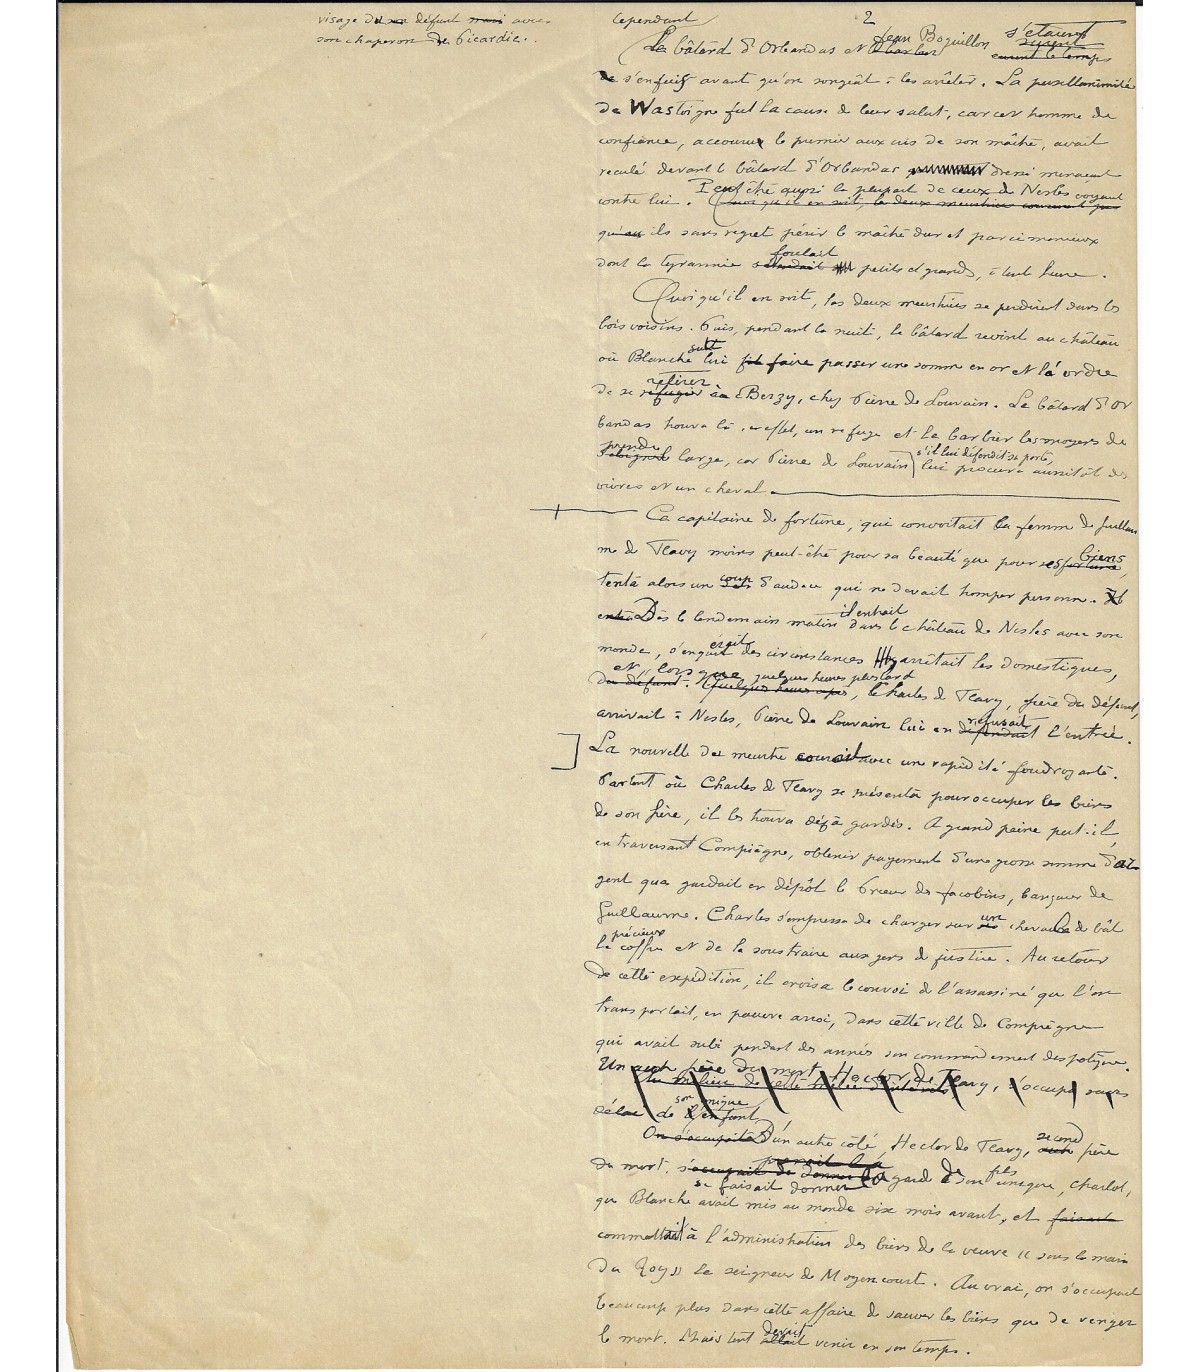 visage du défunt avec
son chaperon de Picardie.
2
Cependant
Le bâtard d'Orbandas et Jean Boquillon s'étaient
s'enfuis avant qu'on songeât à les arrêter. La pusillanimité
de Wastoigne fut la cause de leur salut, car cet homme de
confiance, accouru le premier aux cris de son maître, avait
reculé devant le bâtard d'Orbandas dressé menaçant
contre lui. Peut-être aussi la plupart de ceux de Nesles voyaient
ils sans regret périr le maître dur et parcimonieux
dont la tyrannie foulait petits et grands, à tout heure.
Quoi qu'il en soit, les deux meurtriers se perdirent dans les
bois voisins. Puis, pendant la nuit, le bâtard revint au château
où Blanche sut lui faire passer une somme en or et l'ordre
de se retirer à Berzy, chez Pierre de Louvain. Le bâtard d'Or
bandas trouva là, en effet, un refuge et le barbier les moyens de
prendre large, car Pierre de Louvain s'il lui défendit sa porte, lui procura aussitôt des
vivres et un cheval.
Ce capitaine de fortune, qui convoitait la femme de Guillau
me de Flavy moins peut-être pour sa beauté que pour ses biens,
tenta alors un coup d'audace qui ne devait tromper personne.
Dès le lendemain matin il entrait dans le château de Nesles avec son
monde, s'enquérait des circonstances, arrêtait les domestiques,
et, lorsque quelques heures plus tard, Charles de Flavy, frère du défunt,
arrivait à Nesles, Pierre de Louvain lui en refusait l'entrée.
La nouvelle du meurtre courait avec une rapidité foudroyante.
Partout où Charles de Flavy se présenta pour occuper les biens
de son frère, il les trouva déjà gardés. A grand peine put-il,
en traversant Compiègne, obtenir payement d'une grosse somme d'ar
gent que gardait en dépôt le Prieur des Jacobins, banquier de
Guillaume. Charles s'empressa de charger sur un cheval de bât
le précieux coffre et de le soustraire aux gens de justice. Au retour
de cette expédition, il croisa le convoi de l'assassiné que l'on
transportait, en pauvre arroi, dans cette ville de Compiègne
qui avait subi pendant des années son commandement despotique.
Un autre frère du mort Hector de Flavy, s'occupa sans
délai de son unique enfant
D'un autre côté, Hector de Flavy, second frère
du mort, se faisait donner la garde de son fils unique, Charlot,
que Blanche avait mis au monde six mois avant, et
commettait à l'administration des biens de la veuve « sous la main
du Roy » le seigneur de Moyencourt. Au vrai, on s'occupait
beaucoup plus dans cette affaire de sauver les biens que de venger
le mort. Mais tout devait venir en son temps.